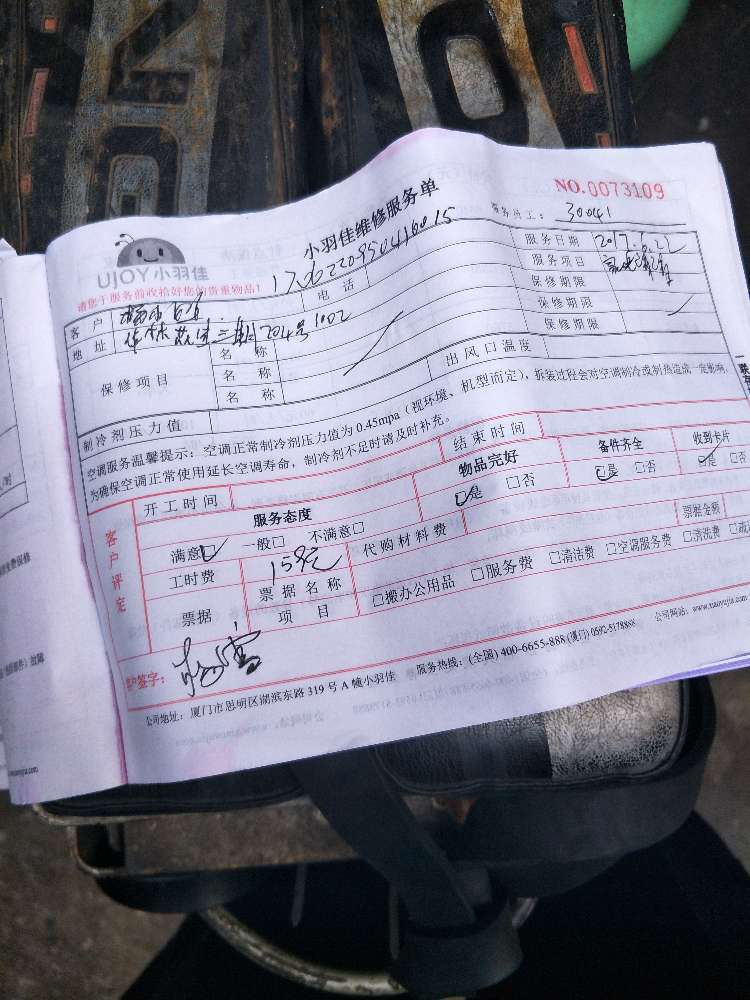 NO.0073109
小羽佳维修服务单
服务员工： 30041
UJOY小羽佳
170622095041 6015
请您于服务前收拾好您的贵重物品！
客户
电话
服务日期 2017.6.22
地址 三期204号1002
服务项目
保修项目
名称
名称
名称
保修期限
保修期限
保修期限
制冷剂压力值
出风口温度
空调服务温馨提示：空调正常制冷剂压力值为0.45mpa（视环境、机型而定），拆装过程会对空调制冷或制热造成一定影响，
为确保空调正常使用延长空调寿命，制冷剂不足时请及时补充。
开工时间
结束时间
客户评定
服务态度
物品完好
备件齐全
收到卡片
满意☑ 一般□ 不满意□
☑是 □否
☑是 □否
☑是 □否
工时费 159元
代购材料费
票据
票据名称
票据金额
项目
□搬办公用品 □服务费 □清洁费 □空调服务费 □清洗费
户签字：
公司地址：厦门市思明区湖滨东路319号A幢小羽佳 服务热线：(全国) 400-6655-888 (厦门) 0592-5178888 公司网站：www.xiaoyujia.com